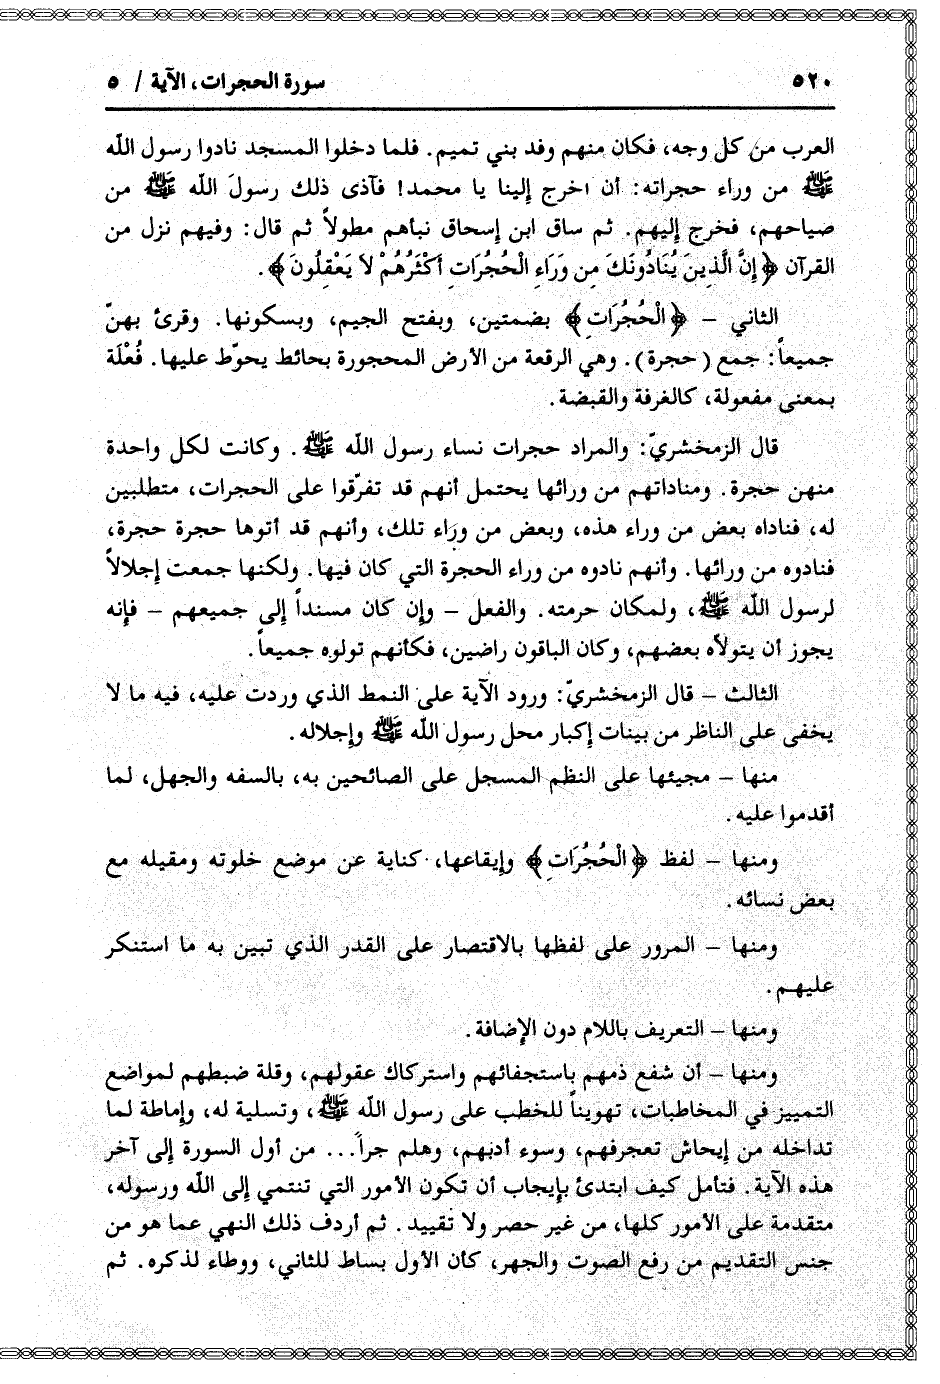 ٥٢٠ سورة الحجرات، الآية / ٥
العرب من كل وجه، فكان منهم وفد بني تميم. فلما دخلوا المسجد نادوا رسول اللّه
ﷺ من وراء حجراته: أن اخرج إلينا يا محمد! فآذى ذلك رسولَ اللّه ﷺ من
صياحهم، فخرج إليهم. ثم ساق ابن إسحاق نبأهم مطولاً ثم قال: وفيهم نزل من
القرآن ﴿إِنَّ الَّذِينَ يُنَادُونَكَ مِن وَرَاءِ الْحُجُرَاتِ أَكْثَرُهُمْ لاَ يَعْقِلُونَ﴾.
الثاني – ﴿الْحُجُرَاتِ﴾ بضمتين، وبفتح الجيم، وبسكونها. وقرئ بهنّ
جميعاً: جمع (حجرة). وهي الرقعة من الأرض المحجورة بحائط يحوّط عليها. فُعْلَة
بمعنى مفعولة، كالغرفة والقبضة.
قال الزمخشريّ: والمراد حجرات نساء رسول اللّه ﷺ. وكانت لكل واحدة
منهن حجرة. ومناداتهم من ورائها يحتمل أنهم قد تفرّقوا على الحجرات، متطلبين
له، فناداه بعض من وراء هذه، وبعض من وراء تلك، وأنهم قد أتوها حجرة حجرة،
فنادوه من ورائها. وأنهم نادوه من وراء الحجرة التي كان فيها. ولكنها جمعت إجلالاً
لرسول اللّه ﷺ، ولمكان حرمته. والفعل – وإن كان مسنداً إلى جميعهم – فإنه
يجوز أن يتولاّه بعضهم، وكان الباقون راضين، فكأنهم تولوه جميعاً.
الثالث – قال الزمخشريّ: ورود الآية على النمط الذي وردت عليه، فيه ما لا
يخفى على الناظر من بينات إكبار محل رسول اللّه ﷺ وإجلاله.
منها – مجيئها على النظم المسجل على الصائحين به، بالسفه والجهل، لما
أقدموا عليه.
ومنها – لفظ ﴿الْحُجُرَاتِ﴾ وإيقاعها، كناية عن موضع خلوته ومقيله مع
بعض نسائه.
ومنها – المرور على لفظها بالاقتصار على القدر الذي تبين به ما استنكر
عليهم.
ومنها – التعريف باللام دون الإضافة.
ومنها – أن شفع ذمهم باستجفائهم واستركاك عقولهم، وقلة ضبطهم لمواضع
التمييز في المخاطبات، تهويناً للخطب على رسول اللّه ﷺ، وتسلية له، وإماطة لما
تداخله من إيحاش تعجرفهم، وسوء أدبهم، وهلم جراً... من أول السورة إلى آخر
هذه الآية. فتأمل كيف ابتدئ بإيجاب أن تكون الأمور التي تنتمي إلى اللّه ورسوله،
متقدمة على الأمور كلها، من غير حصر ولا تقييد. ثم أردف ذلك النهي عما هو من
جنس التقديم من رفع الصوت والجهر، كأن الأول بساط للثاني، ووطاء لذكره. ثم